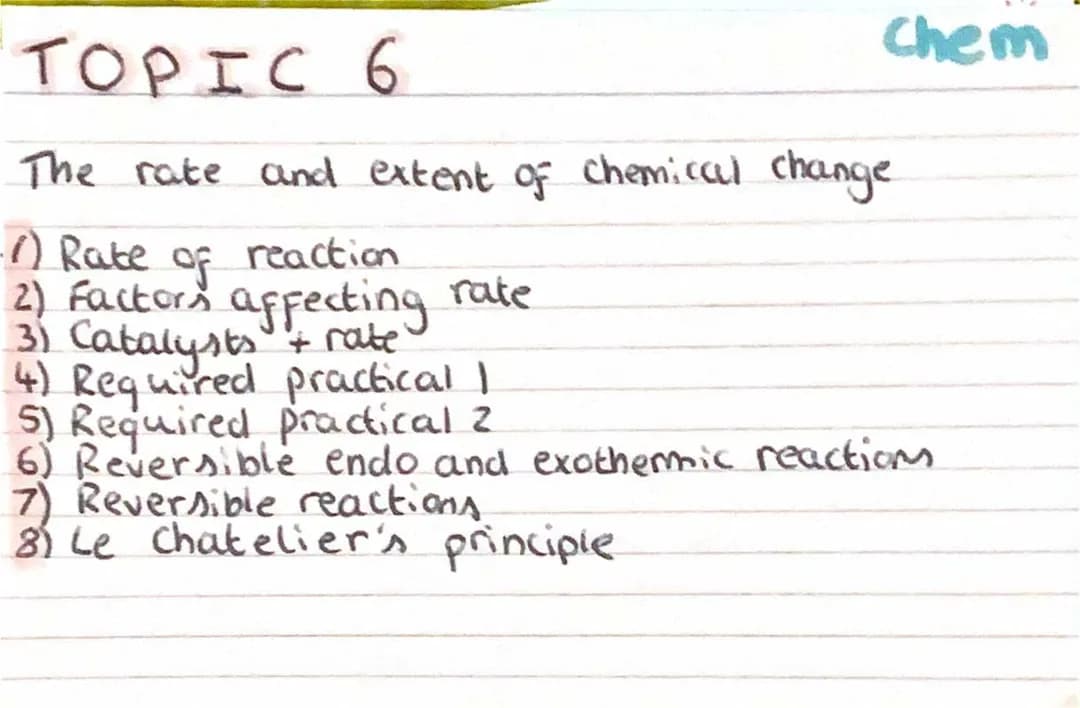 Chem
TOPIC 6
The rate and extent of chemical change
1) Rate of reaction
2) Factors affecting rate
3) Catalysts + rate
4) Required practical 1
5) Required practical 2
6) Reversible endo and exothermic reactions
7) Reversible reactions
8) Le Chatelier's principle